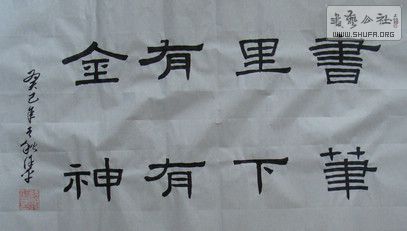 書里有金
筆下有神
癸巳年
书艺公社
www.SHUFA.ORG